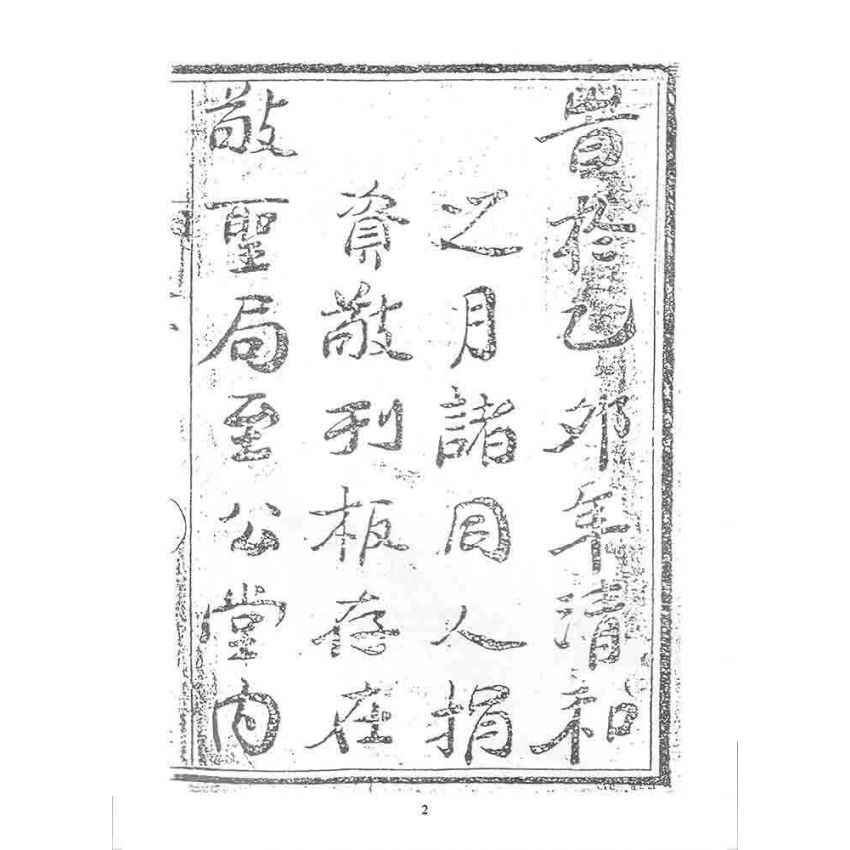 旹扵己夘年清和
之月諸同人捐
資敬刊板存在
敬聖局至公堂内
2